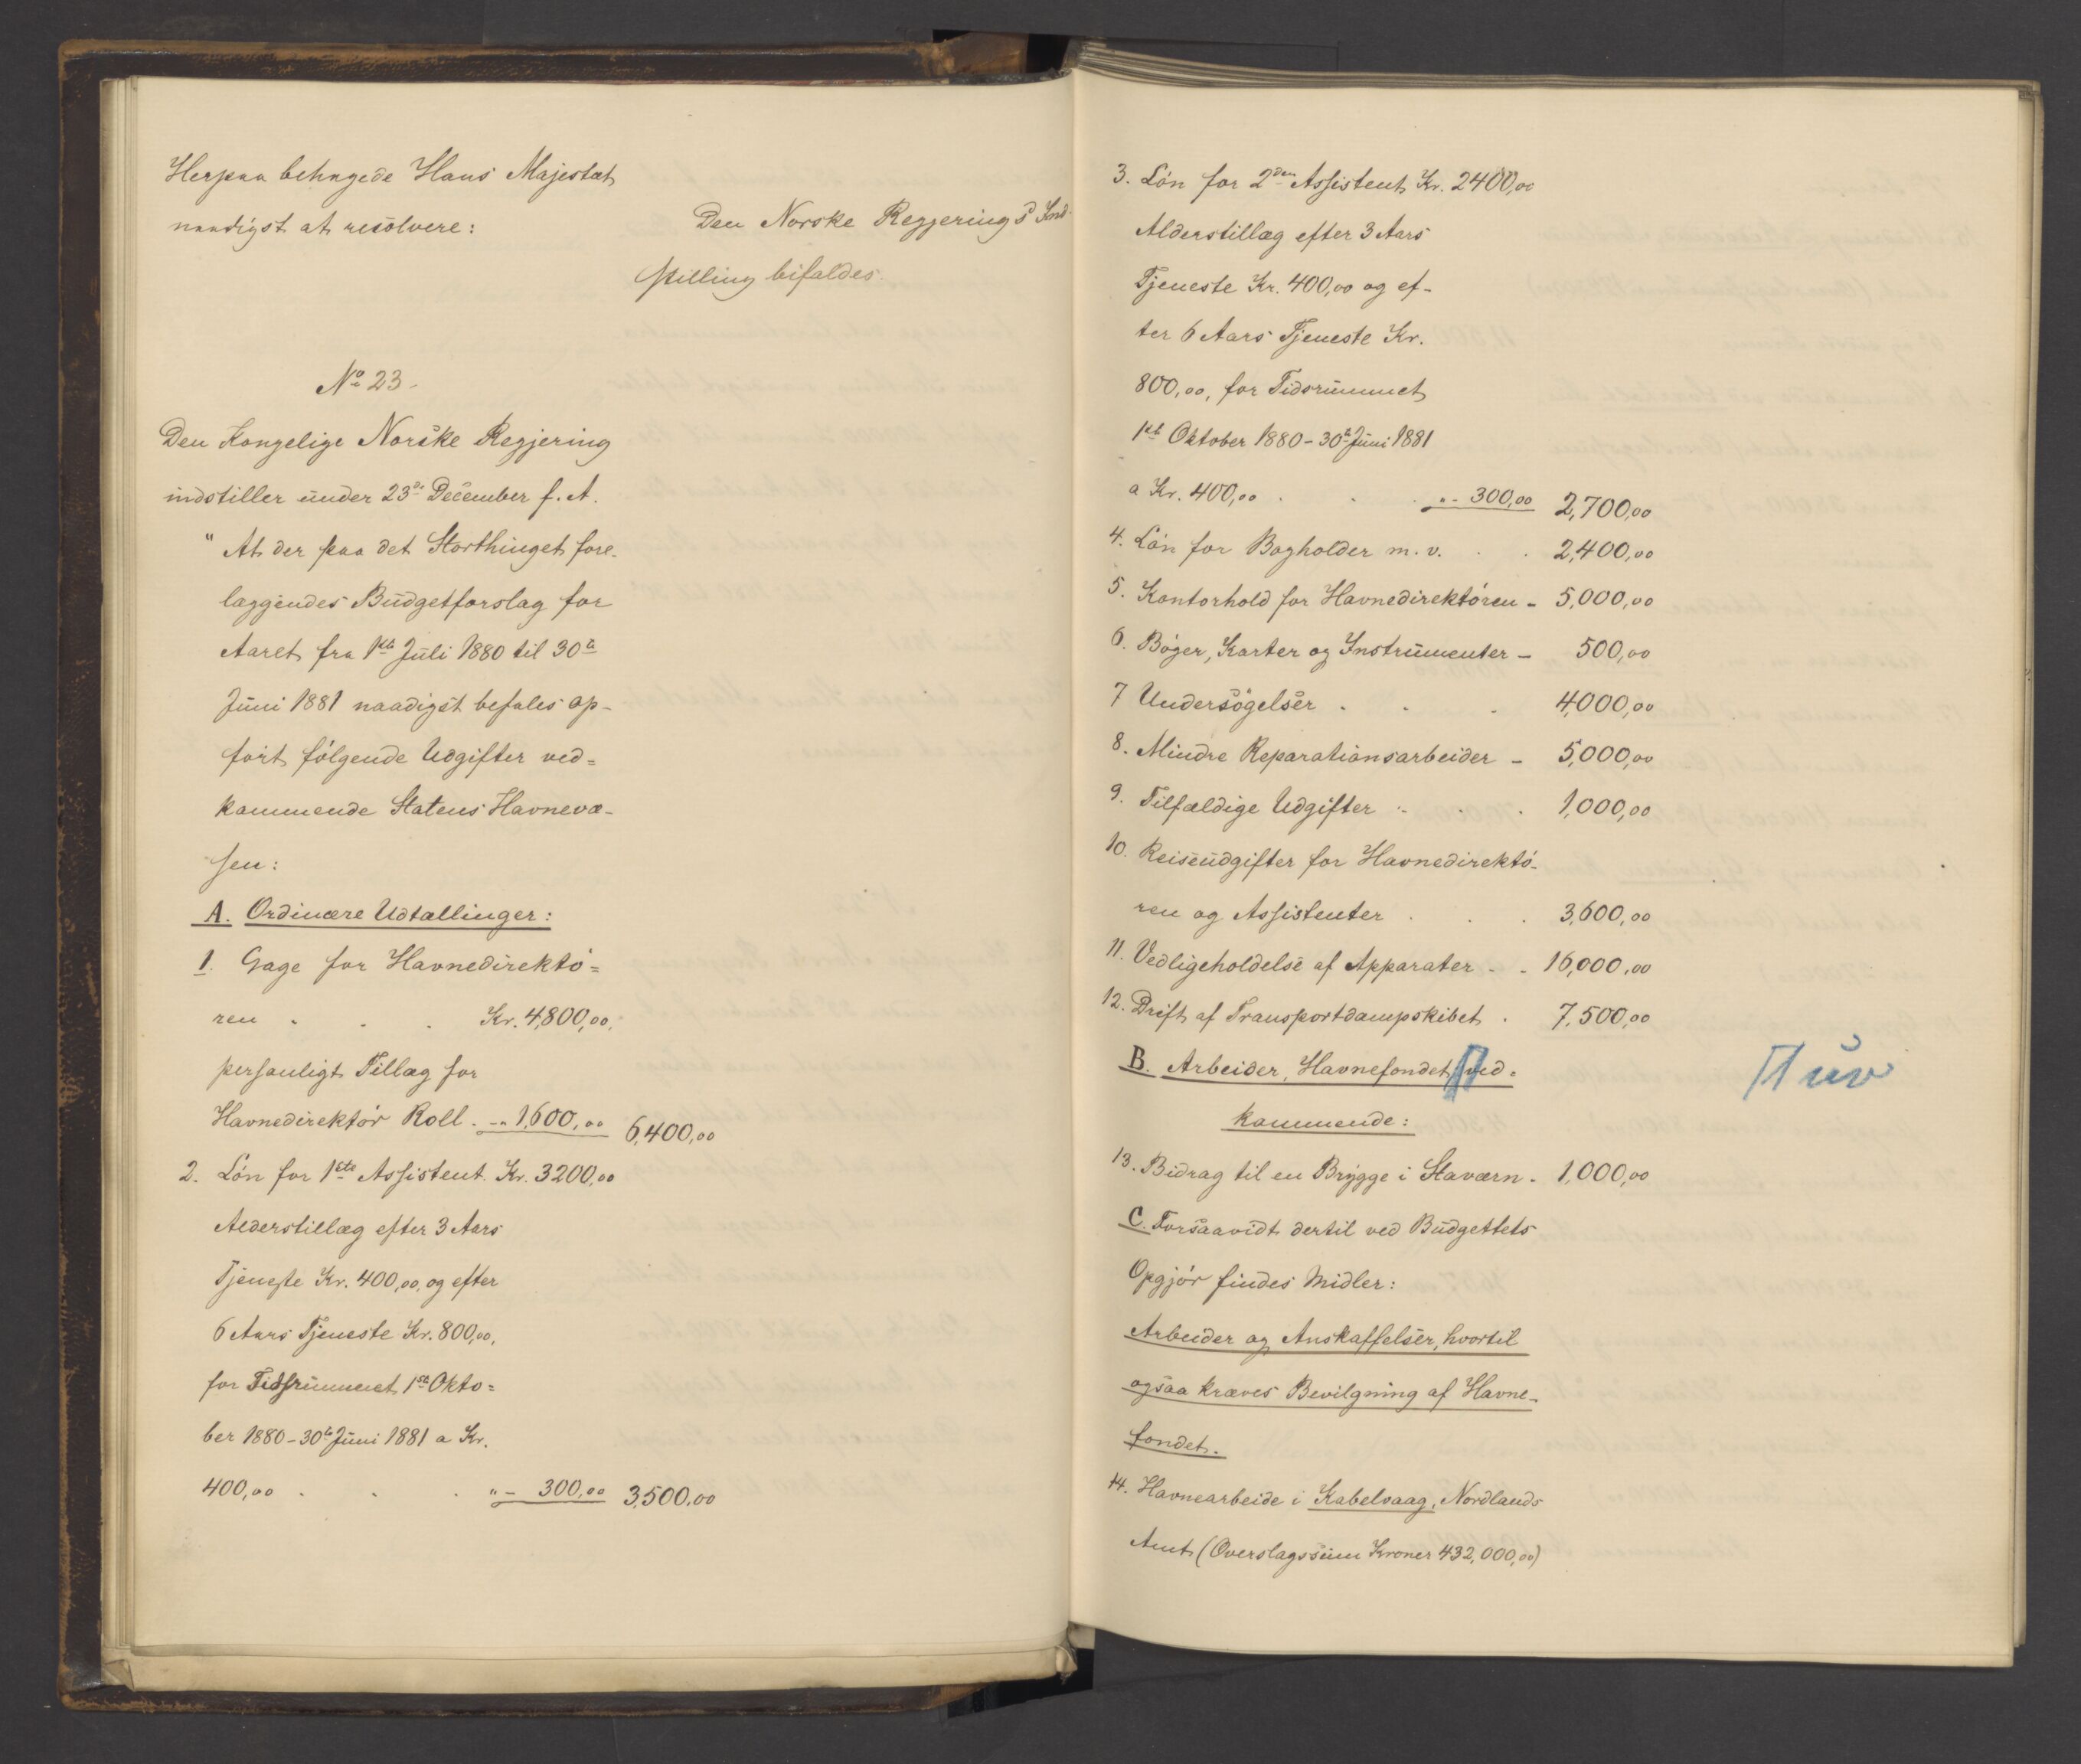 Herpaa behagede Hans Majestæt
naadigst at resolvere:
Den Norske Regjerings Ind-
stilling bifaldes.
No 23.
Den Kongelige Norske Regjering
indstiller under 23de December f. A.
"At der paa det Storthinget fore-
læggendes Budgetforslag for
Aaret fra 1ste Juli 1880 til 30te
Juni 1881 naadigst befales op-
ført følgende Udgifter ved-
kommende Statens Havnevæ-
sen:
A. Ordinære Udtællinger:
1. Gage for Havnedirektø-
ren . . . Kr. 4,800,00,
personligt Tillæg for
Havnedirektør Roll. -„ 1,600,00 6,400,00
2. Løn for 1ste Assistent. Kr. 3200,00
Alderstillæg efter 3 Aars
Tjeneste Kr. 400,00, og efter
6 Aars Tjeneste Kr. 800,00,
for Tidsrummet 1ste Okto-
ber 1880-30te Juni 1881 a Kr.
400,00 . . . „- 300,00 3,500,00
3. Løn for 2den Assistent Kr. 2400,00
Alderstillæg efter 3 Aars
Tjeneste Kr. 400,00 og ef-
ter 6 Aars Tjeneste Kr.
800,00, for Tidsrummet
1ste Oktober 1880-30te Juni 1881
a Kr. 400,00 . . . „- 300,00 2,700,00
4. Løn for Bogholder m. v. . . 2,400,00
5. Kontorhold for Havnedirektøren - 5,000,00
6. Bøger, Karter og Instrumenter - 500,00
7 Undersøgelser . . . 4,000,00
8. Mindre Reparationsarbeider - 5,000,00
9. Tilfældige Udgifter . . . 1,000,00
10. Reiseudgifter for Havnedirektø-
ren og Assistenter . . . 3,600,00
11. Vedligeholdelse af Apparater . . 16,000,00
12. Drift af Transportdampskibet . 7,500,00
B. Arbeider, Havnefondet ved-
kommende:
13. Bidrag til en Brygge i Staværn . 1,000,00
C. Forsaavidt dertil ved Budgettets
Opgjør findes Midler:
Arbeider og Anskaffelser, hvortil
ogsaa kræves Bevilgning af Havne-
fondet.
14. Havnearbeide i Kabelvaag, Nordlands
Amt (Overslagssum Kroner 432,000,00)